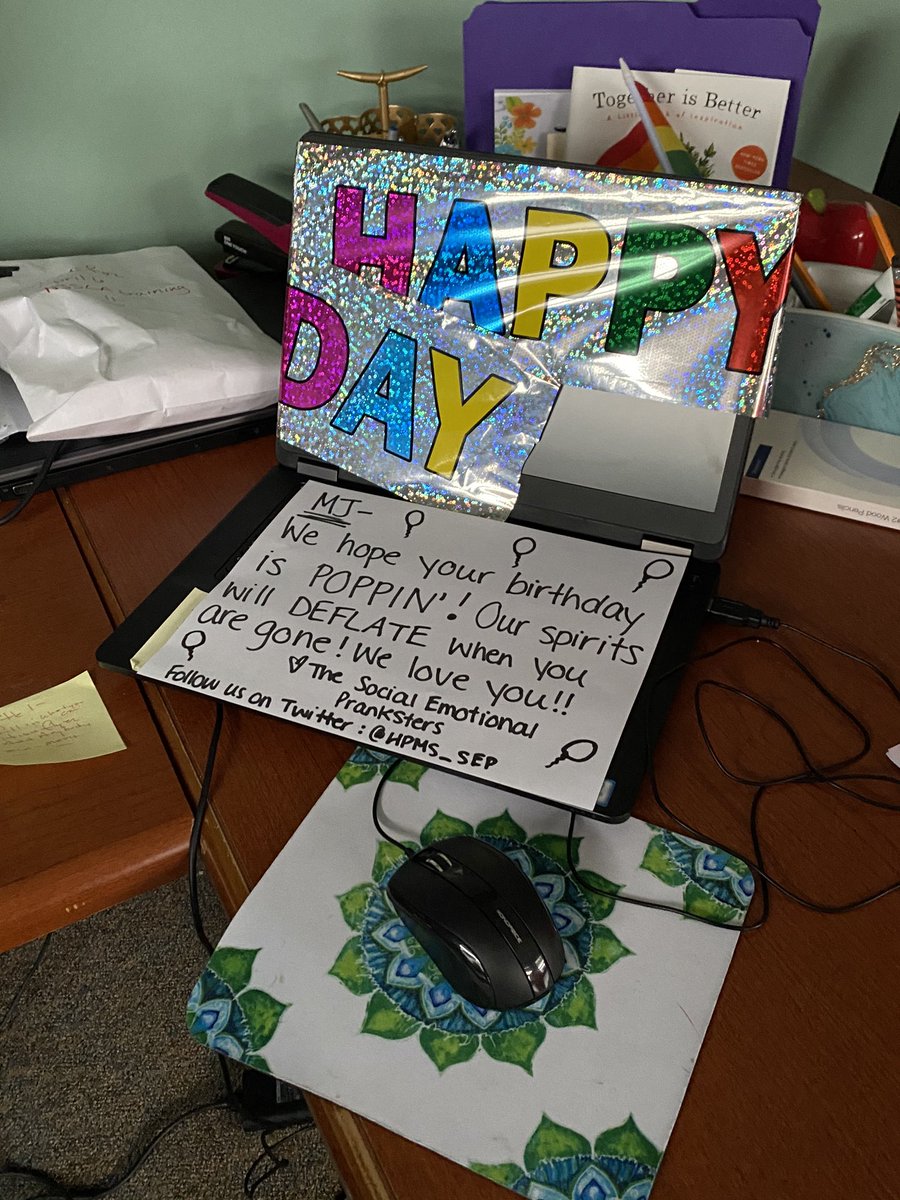 Together is Better
A Little Book of Inspiration
HAPPY
DAY
MJ-
We hope your birthday
is POPPIN'! Our spirits
will DEFLATE when you
are gone! We love you!!
The Social Emotional
Pranksters
Follow us on Twitter: @HPMS_SEP
#2 Wood Pencils